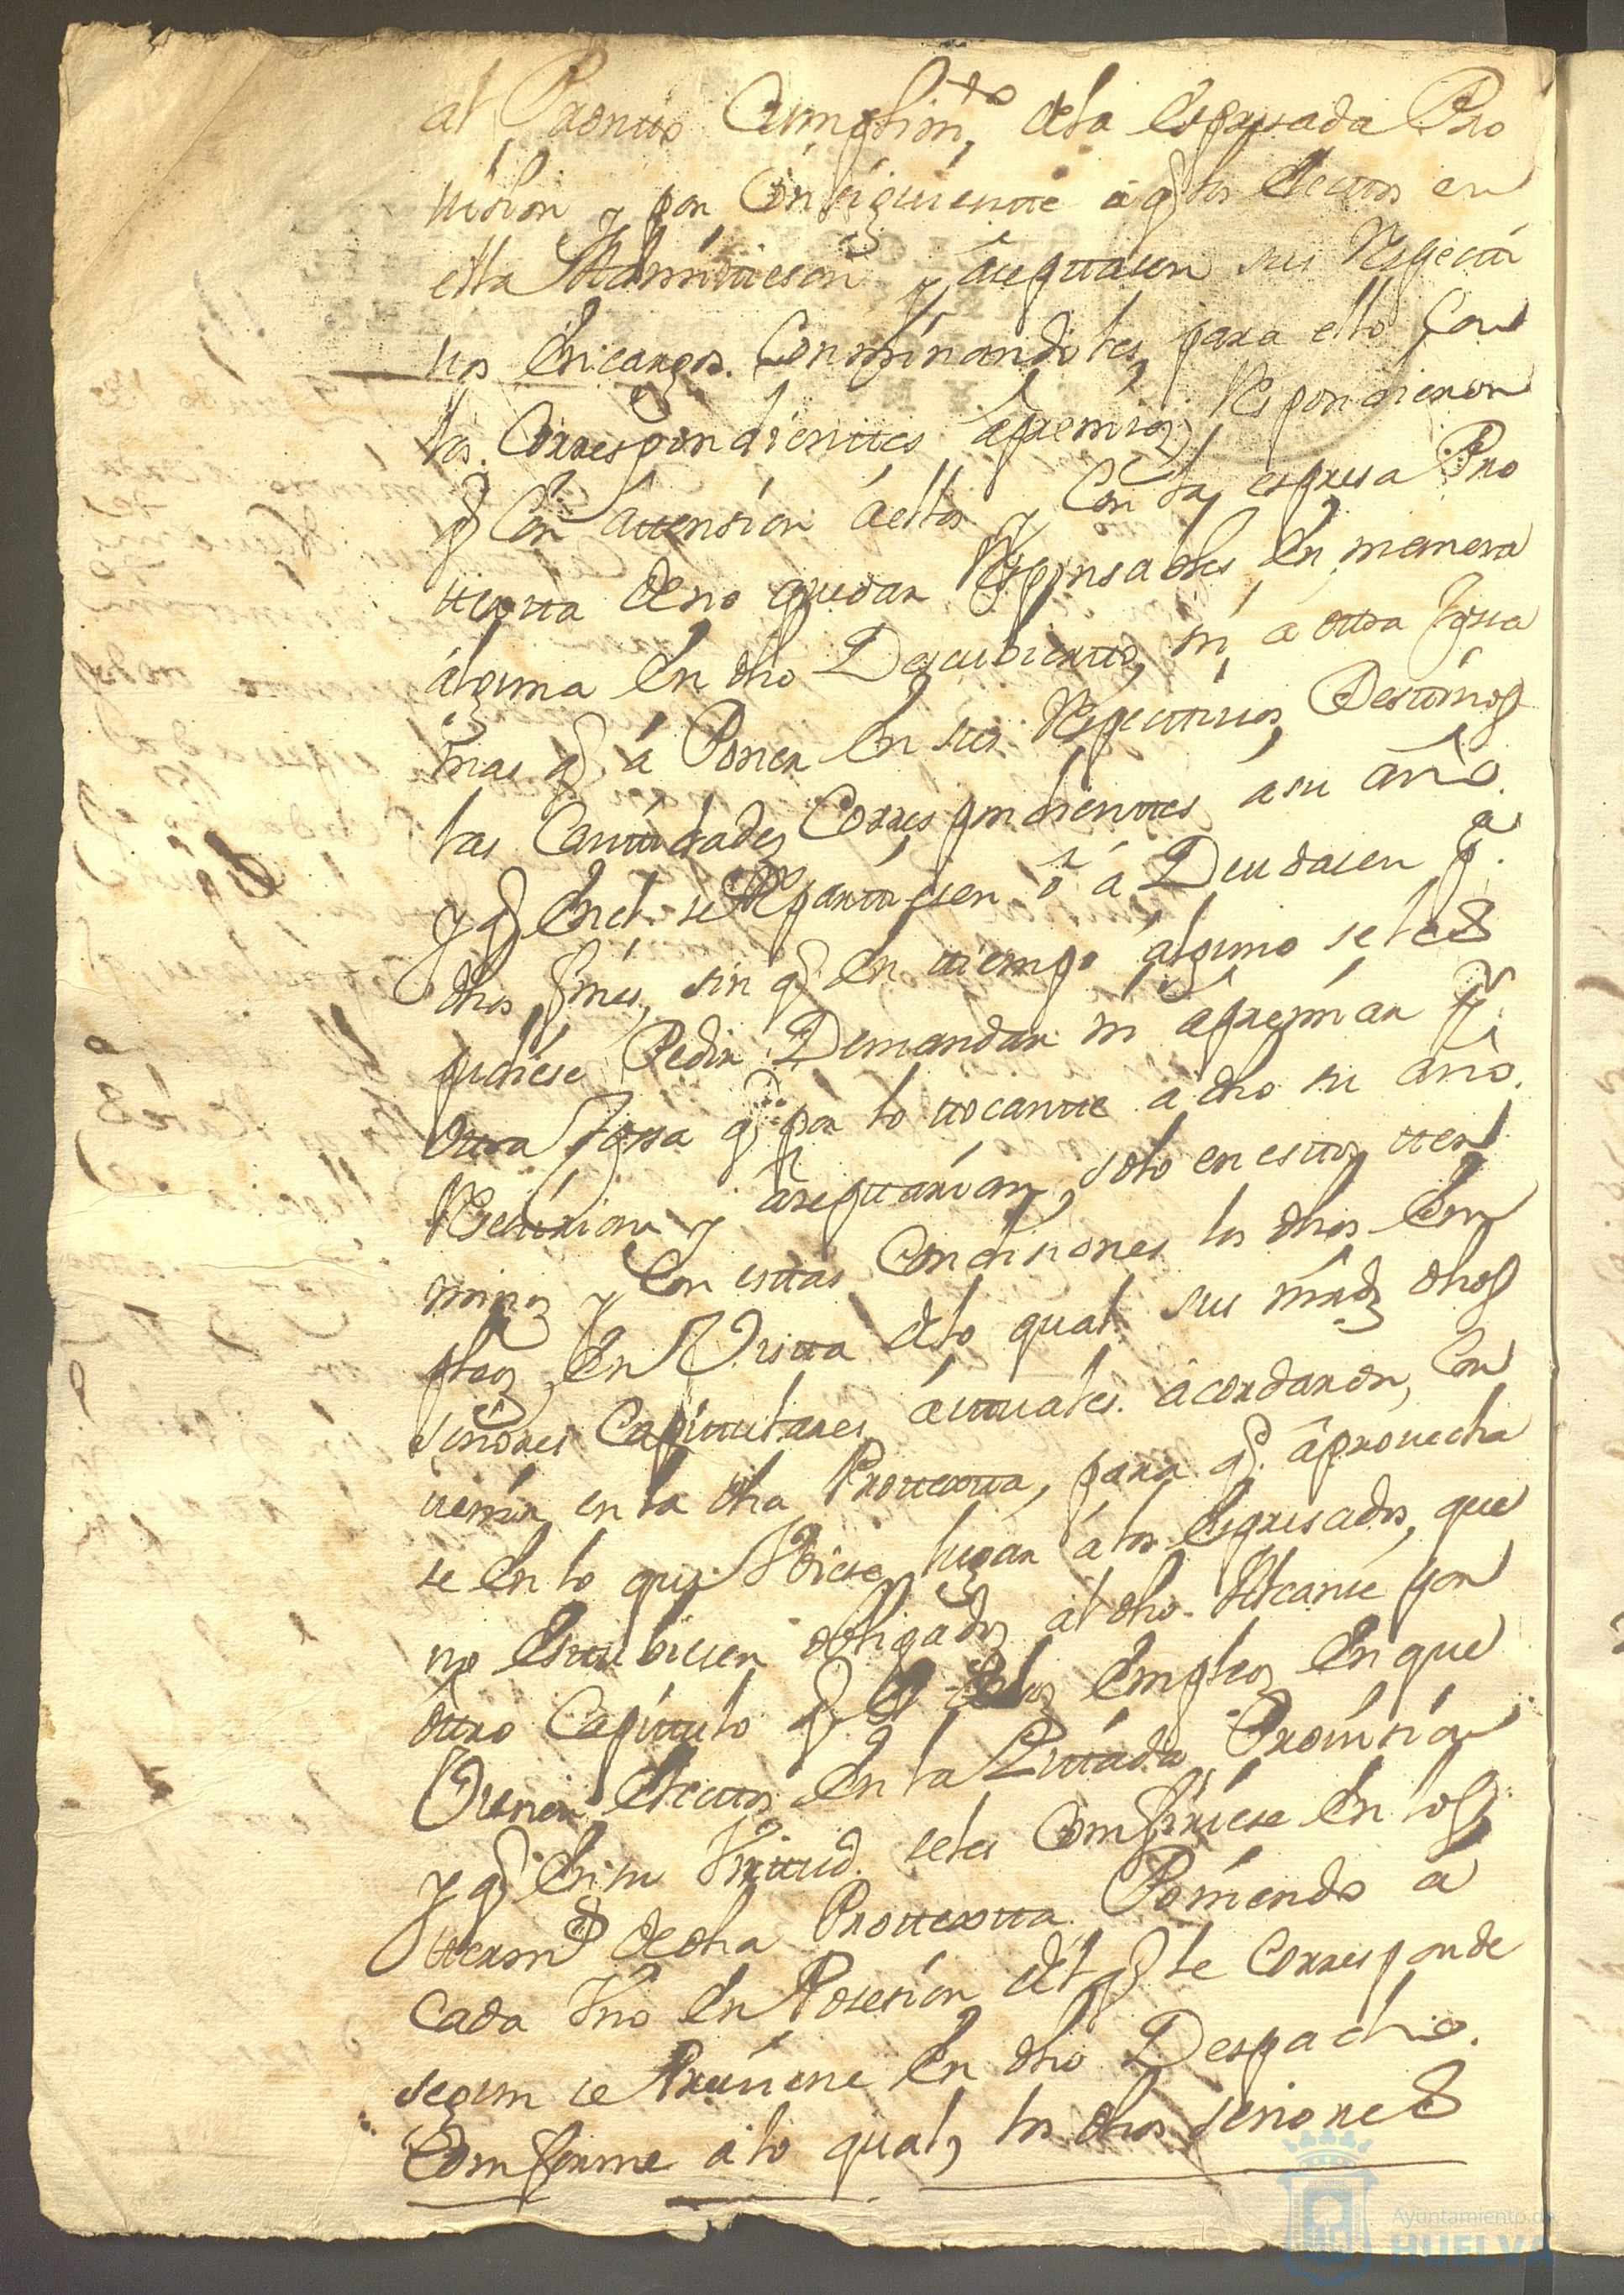 al Promto Cumplim.to dela Espresada Pro
vision y por Consiguiente a q.e los Electos en
ella Admitiesen y aseptasen sus Respecti
vos Encargos. Conminandoles para ello Con
los Correspondientes apremios, Respondieron
q.e Con attension a ello y Con la espresa Pro
testta de no quedar Responsables En manera
alguna En dho Descubiertto, ni a otra Cosa
mas q.e a Poner En sus Respectivos Destinos
las Canttidades Correspondienttes a su año.
y q.e En el se Reparttiesen o a Deudasen p.a
dhos fines, sin q.e en ttiempo alguno se les
pudiese Pedir Demandar ni apremiar p.r
Ottra Cosa q.e por lo ttocantte a dho su año.
Resevirian y aseptarian, solo en estos tter
minos y Con esttas Condisiones los dhos Em
pleos, En Vistta delo qual sus mrds dhos
señores Capittulares attuales. acordaron, Con
venir en la dha Prottextta, para q.e aprovecha
se En lo que Hubiese lugar a los Espresados, que
no Esttubiesen obligados al dho Alcanse por
ottro Capittulo q.e de los Empleos En que
Venian Electos En la Zittada Provision
y q.e En su Virttud. se les Confiriese En los
tterm.s de dha Prottextta. Poniendo a
Cada Vno En Posesion del q.e le Corresponde
segun se Previene En dho Despacho.
Comforme a lo qual, los dhos señores
Ayuntamiento de
HUELVA